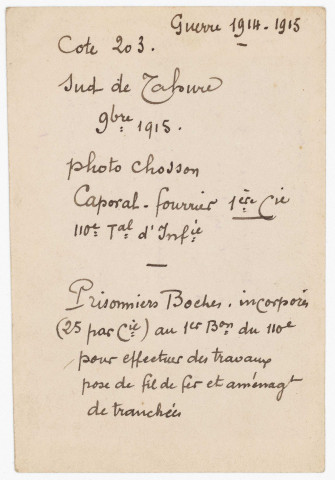 Guerre 1914-1915
Cote 203.
Sud de Tahure
9bre 1915.
photo Chosson
Caporal-fourrier 1ère Cie
110e Tal d'Infie
Prisonniers Boches. incorporés
(25 par Cie) au 1er Bon du 110e
pour effectuer des travaux
pose de fil de fer et aménagt
de tranchées